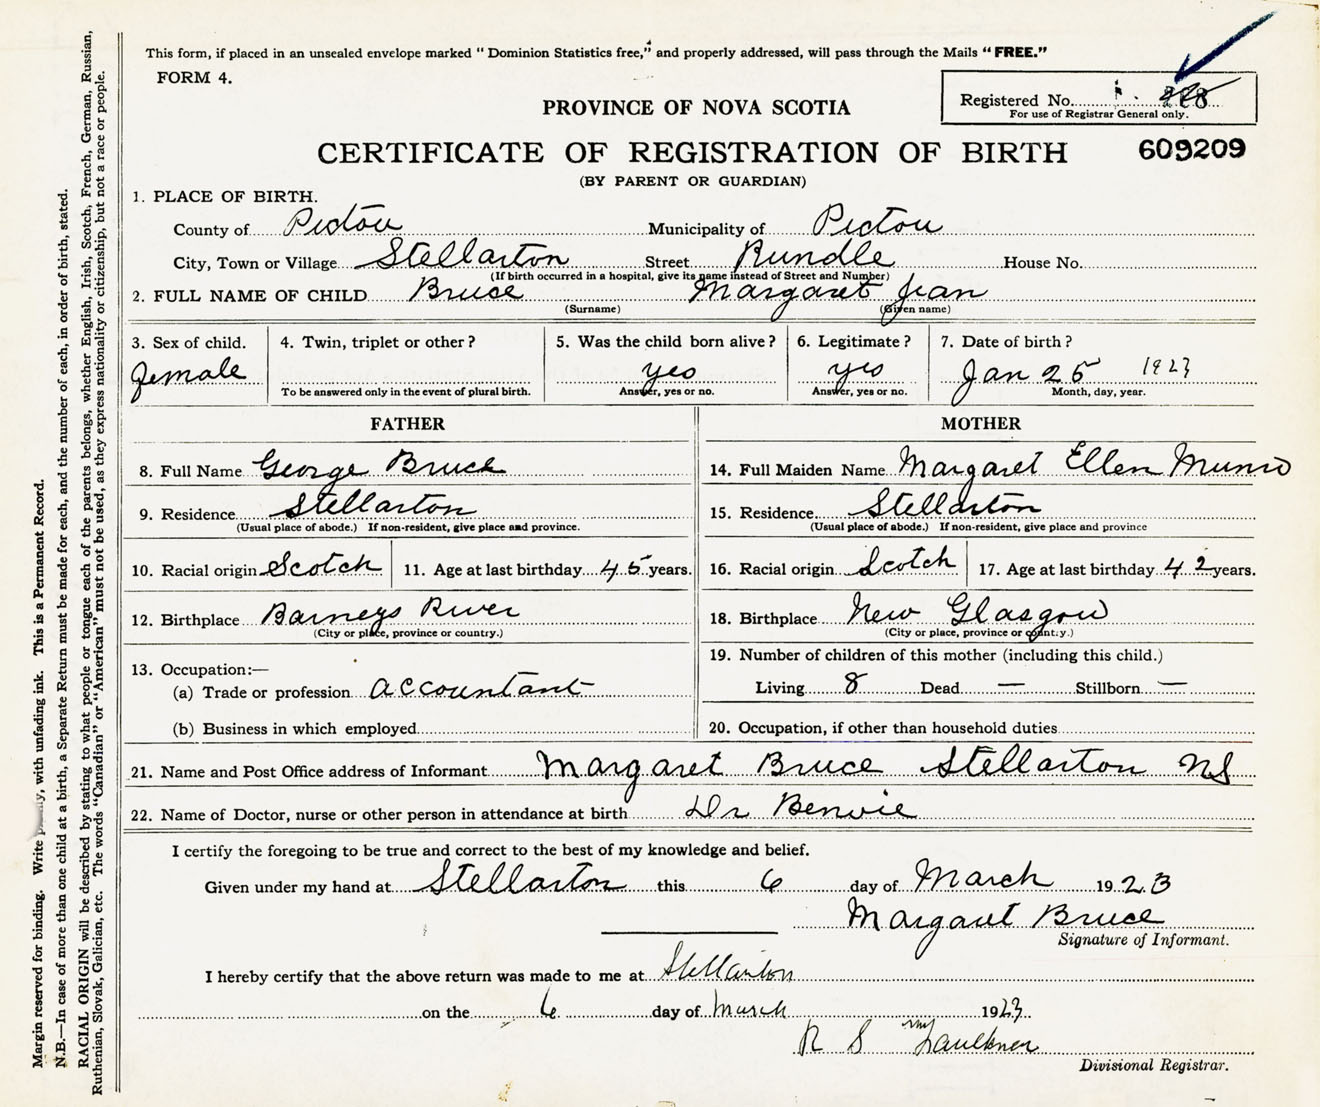 This form, if placed in an unsealed envelope marked "Dominion Statistics free," and properly addressed, will pass through the Mails "FREE."
FORM 4.
Registered No.
For use of Registrar General only.
PROVINCE OF NOVA SCOTIA
CERTIFICATE OF REGISTRATION OF BIRTH 609209
(BY PARENT OR GUARDIAN)
1. PLACE OF BIRTH.
County of Pictou Municipality of Pictou
City, Town or Village Stellarton Street Rundle House No.
(If birth occurred in a hospital, give its name instead of Street and Number)
2. FULL NAME OF CHILD Bruce Margaret Jean
(Surname) (Given name)
3. Sex of child. female
4. Twin, triplet or other?
To be answered only in the event of plural birth.
5. Was the child born alive? yes
Answer, yes or no.
6. Legitimate? yes
Answer, yes or no.
7. Date of birth?
Jan 25 1923
Month, day, year.
FATHER
8. Full Name George Bruce
9. Residence Stellarton
(Usual place of abode.) If non-resident, give place and province.
10. Racial origin Scotch 11. Age at last birthday 45 years.
12. Birthplace Barneys River
(City or place, province or country.)
13. Occupation:—
(a) Trade or profession accountant
(b) Business in which employed
MOTHER
14. Full Maiden Name Margaret Ellen Munro
15. Residence Stellarton
(Usual place of abode.) If non-resident, give place and province
16. Racial origin Scotch 17. Age at last birthday 42 years.
18. Birthplace New Glasgow
(City or place, province or country.)
19. Number of children of this mother (including this child.)
Living 8 Dead — Stillborn —
20. Occupation, if other than household duties
21. Name and Post Office address of Informant Margaret Bruce Stellarton NS
22. Name of Doctor, nurse or other person in attendance at birth Dr Benvie
I certify the foregoing to be true and correct to the best of my knowledge and belief.
Given under my hand at Stellarton this 6 day of March 1923
Margaret Bruce
Signature of Informant.
I hereby certify that the above return was made to me at Stellarton
on the 6 day of March 1923
R S Faulkner
Divisional Registrar.
Margin reserved for binding. Write with unfading ink. This is a Permanent Record.
N.B.—In case of more than one child at a birth, a Separate Return must be made for each, and the number of each, in order of birth, stated.
RACIAL ORIGIN will be described by stating to what people or tongue each of the parents belongs, whether English, Irish, Scotch, French, German, Russian,
Ruthenian, Slovak, Galician, etc. The words "Canadian" or "American" must not be used, as they express nationality or citizenship, but not a race or people.